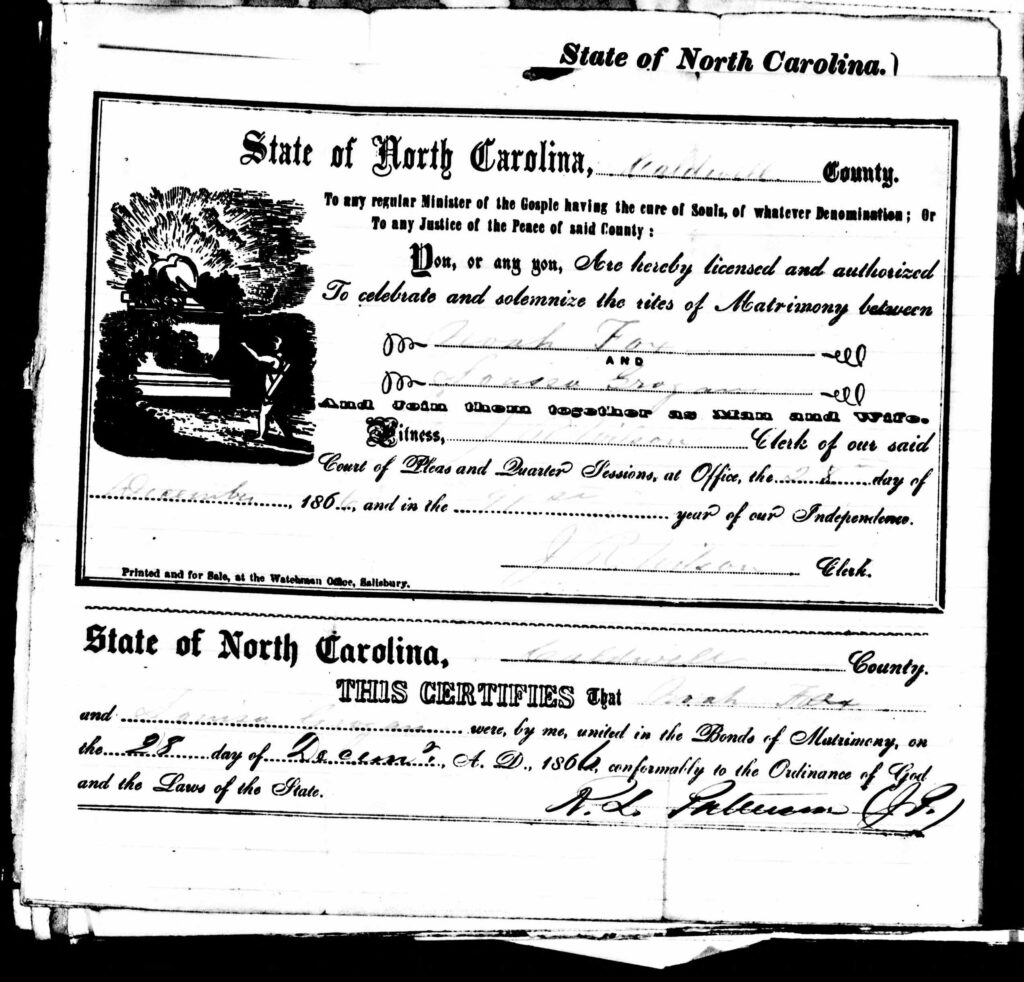 State of North Carolina.)
State of North Carolina, Caldwell County.
To any regular Minister of the Gosple having the cure of Souls, of whatever Denomination; Or
To any Justice of the Peace of said County:
You, or any you, Are hereby licensed and authorized
To celebrate and solemnize the rites of Matrimony between
Noah Fox
AND
Louisa Grogan
And Join them together as Man and Wife.
Witness, J R Wilson Clerk of our said
Court of Pleas and Quarter Sessions, at Office, the 28 day of
December, 1866, and in the 91st year of our Independence.
J R Wilson Clerk.
Printed and for Sale, at the Watchman Office, Salisbury.
State of North Carolina, Caldwell County.
THIS CERTIFIES That Noah Fox
and Louisa Grogan were, by me, united in the Bonds of Matrimony, on
the 28 day of Decemr, A. D., 1866, conformably to the Ordinance of God
and the Laws of the State.
Patterson (J.P.)